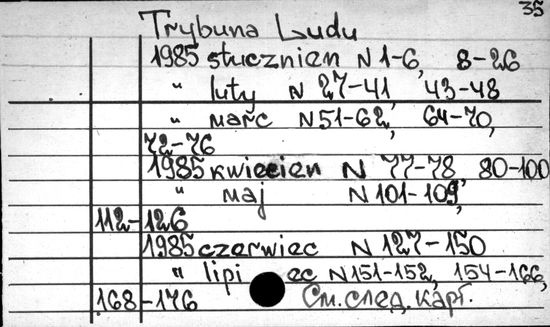 35
Trybuna Ludu
1985 stycznien N 1-6, 8-26
" luty N 27-41, 43-48
" marc N 51-62, 64-70,
72-76
1985 kwiecien N 77-78, 80-100
" maj N 101-109,
112-126
1985 czerwiec N 127-150
" lipi ec N 151-152, 154-166,
168-176 См. след. карт.